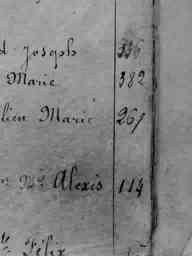 Joseph 336
Marie 382
lien Marie 267
Alexis 114
Félix